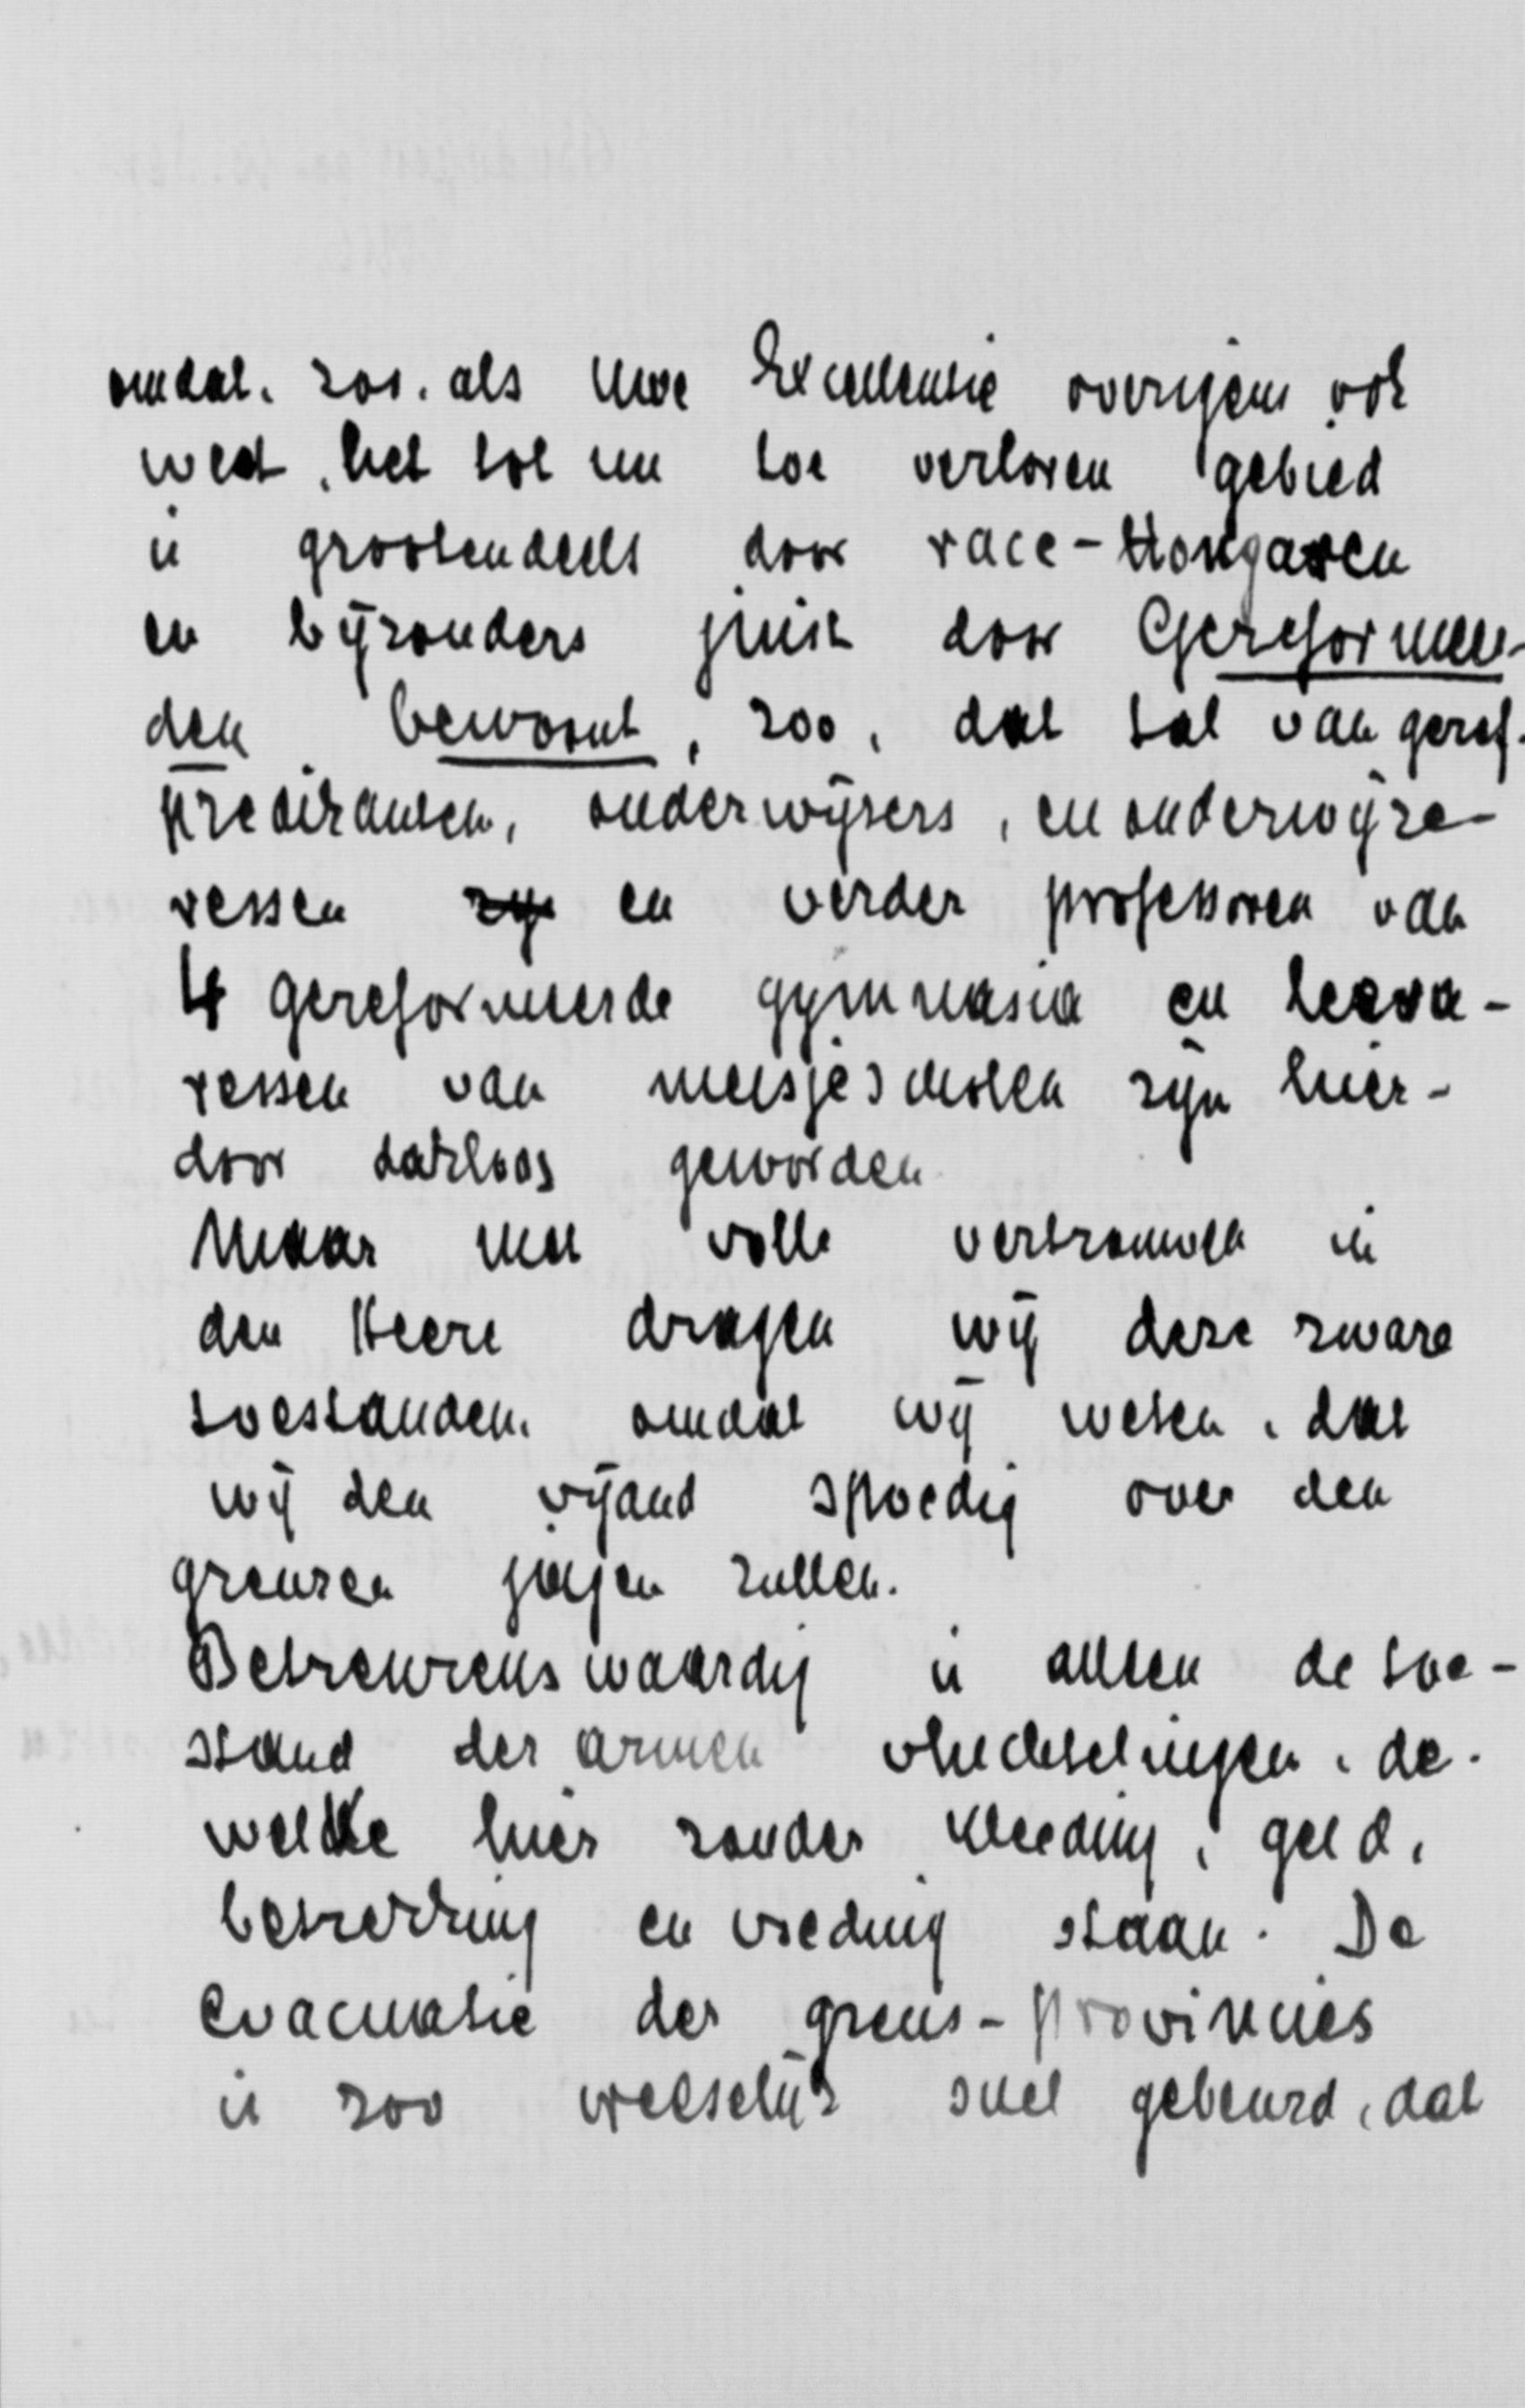 omdat, zoo, als Uwe Excellentie overigens ook
weet, het tot nu toe verloren gebied
is grootendeels door race-Hongaren
en bijzonders juist door Gereformeer-
den bewoont, zoo, dat tal van geref.
predikanten, onderwijzers, en onderwijze-
ressen zijn en verder professoren van
4 gereformeerde gymnasia en leera-
ressen van meisjescholen zijn hier-
door dakloos geworden
Maar met volle vertrouwen in
den Heere dragen wij deze zware
toestanden, omdat wij weten, dat
wij den vijand spoedig over den
grenzen jagen zullen.
Betreurenswaardig is alleen de toe-
stand der armen vluchtelingen, de-
welke hier zonder kleeding, geld,
betrekking en voeding staan. De
evacuatie der grens-provincies
is zoo vreeselijk snel gebeurd, dat